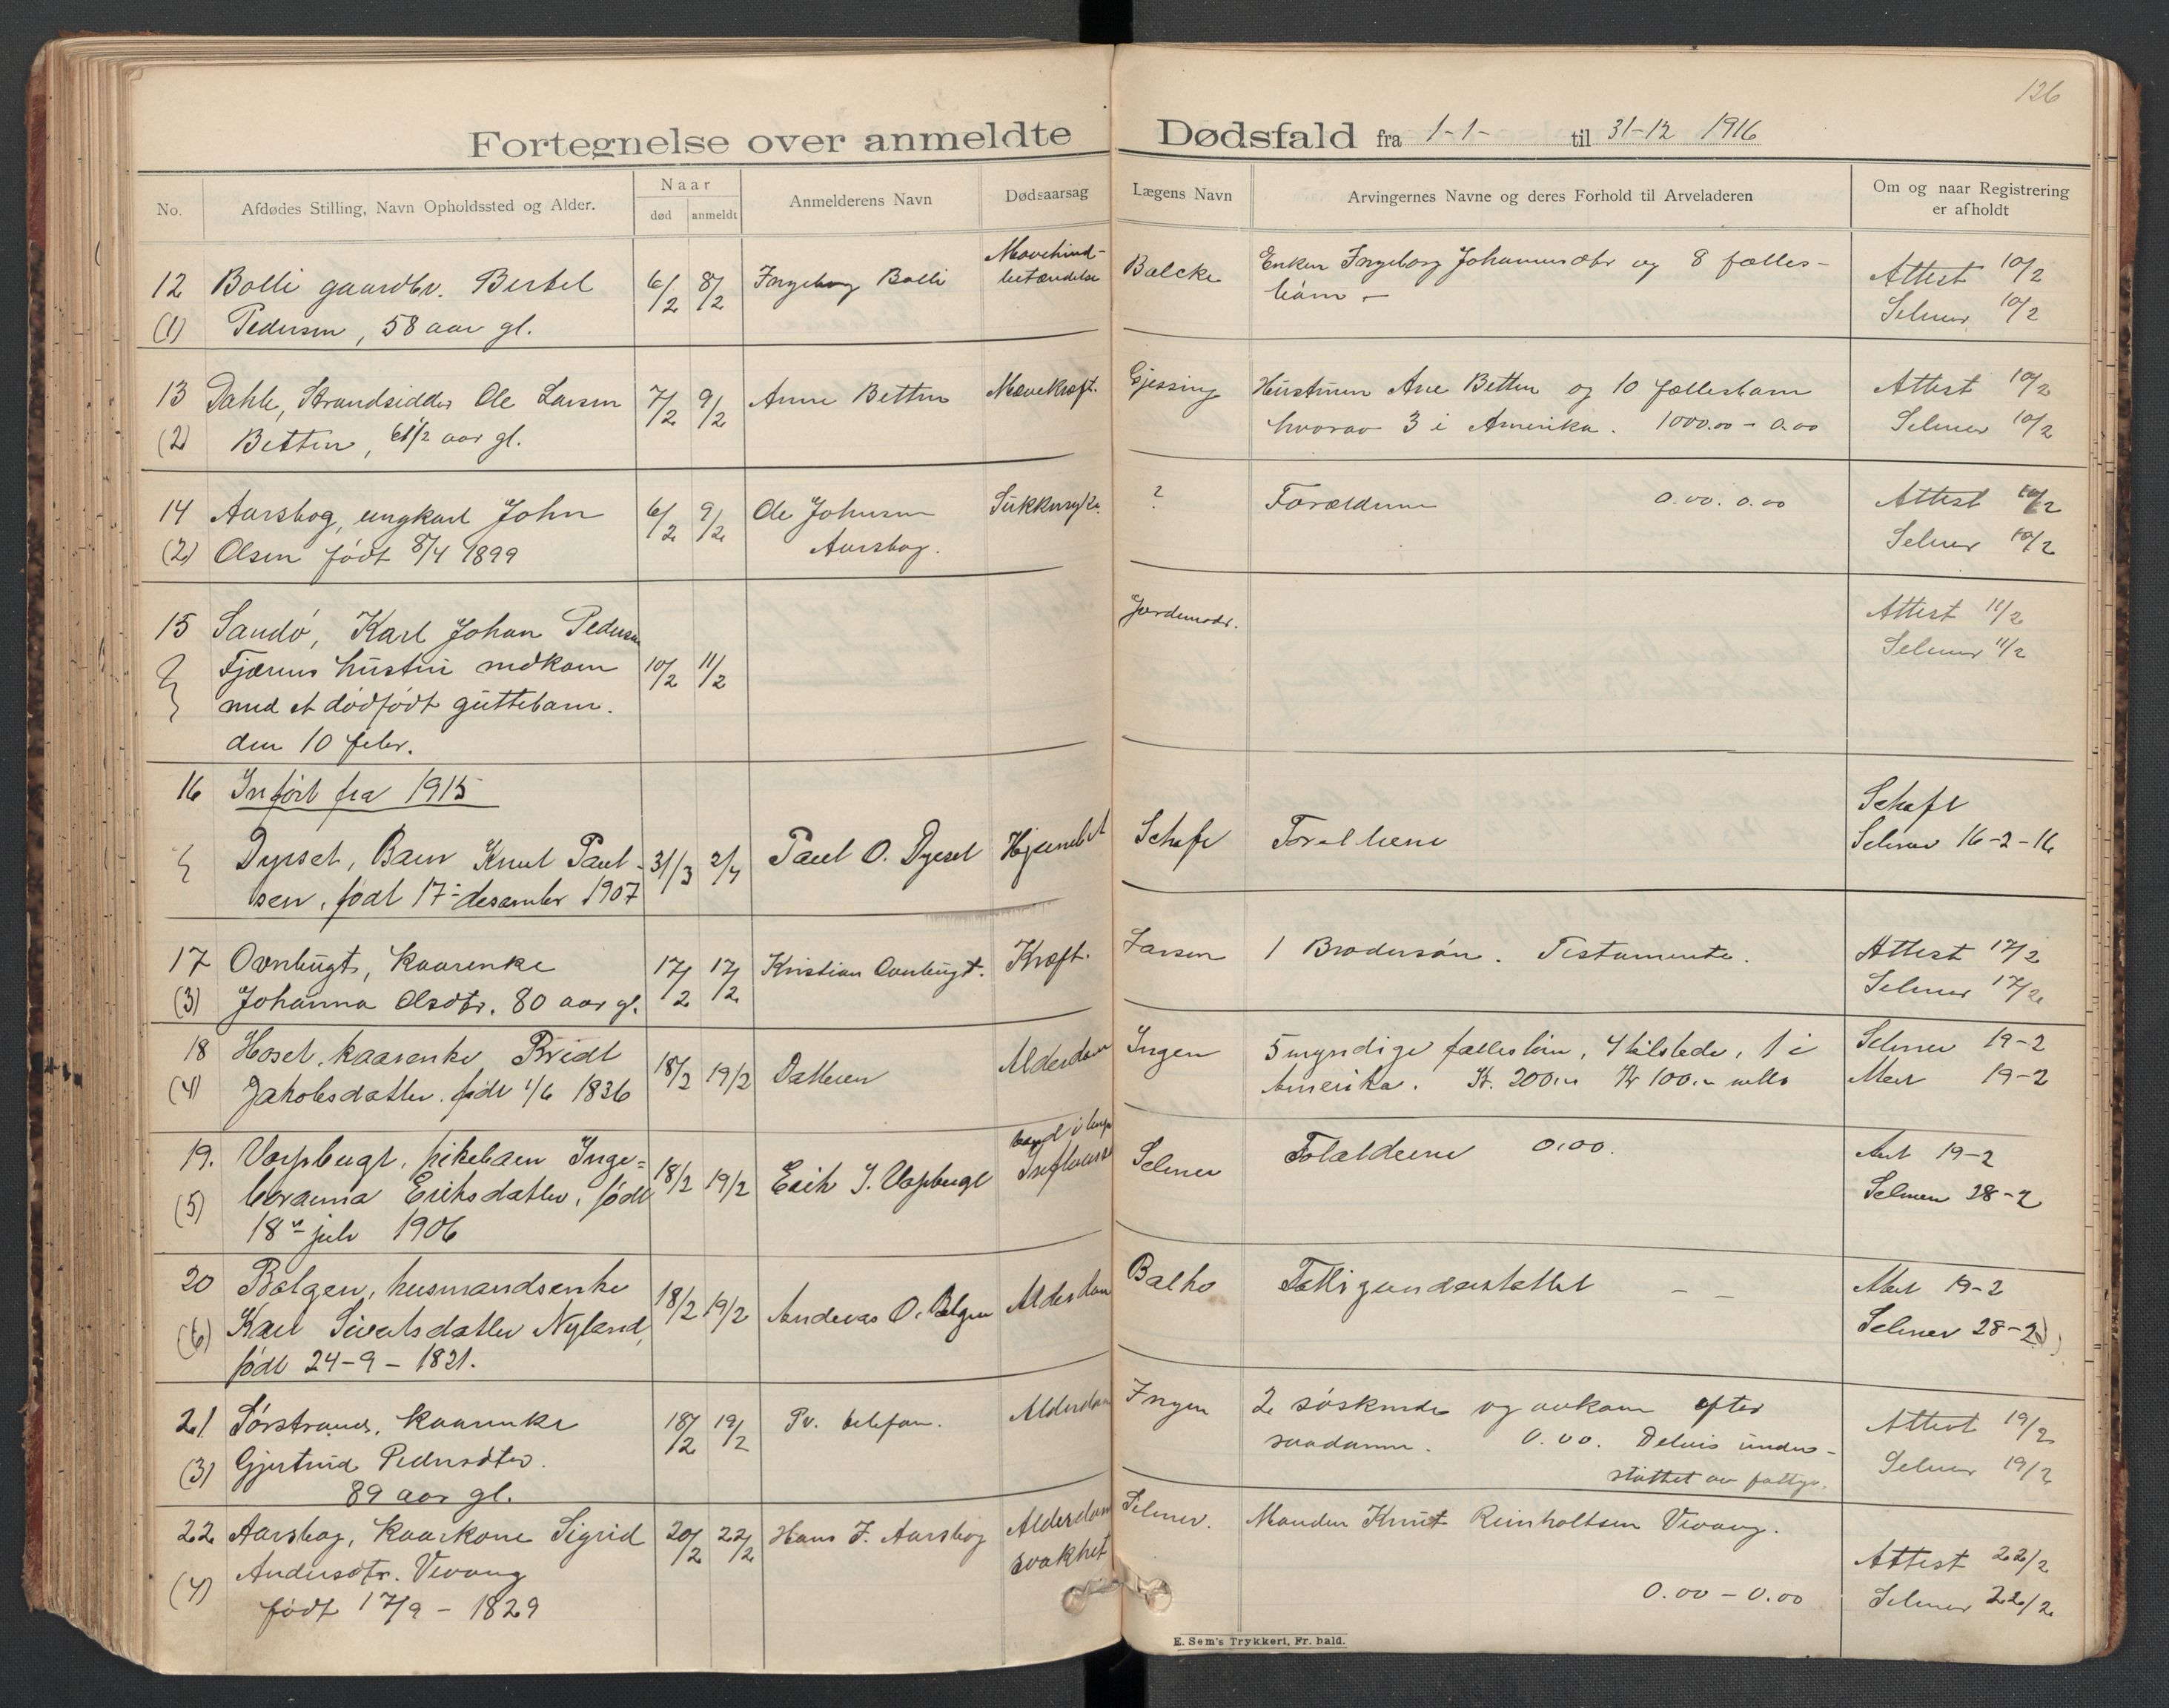 126
Fortegnelse over anmeldte Dødsfald fra 1-1- til 31-12 1916
No. Afdødes Stilling, Navn Opholdssted og Alder. Naar død anmeldt Anmelderens Navn Dødsaarsag Lægens Navn Arvingernes Navne og deres Forhold til Arveladeren Om og naar Registrering er afholdt
12 Bolli gaardbr. Bertel 6/2 8/2 Ingeborg Bolli Mavehind- Balcke Enken Ingeborg Johannesdtr og 8 fælles- Attest 10/2
(1) Pedersen, 58 aar gl. betændelse børn - Selmer 10/2
13 Dahle, Strandsidder Ole Larsen 7/2 9/2 Anne Betten Mavekræft. Gjessing Hustruen Ane Betten og 10 fællesbarn Attest 10/2
(2) Betten, 61 1/2 aar gl. hvorav 3 i Amerika. 1000.00 - 0.00 Selmer 10/2
14 Aarsbog, ungkarl John 6/2 9/2 Ole Johnsen Sukkersyke. ? Forældrene 0.00. 0.00 Attest 10/2
(2) Olsen født 8/4 1899 Aarsbog. Selmer 10/2
15 Sandø, Karl Johan Pedersen Jordemodr. Attest 11/2
Fjærens hustru nedkom 10/2 11/2 Selmer 11/2
med et dødfødt guttebarn.
den 10 febr.
16 Indført fra 1915 Schaft
Dyrset, Barn Knut Paul- 31/3 2/4 Paul O. Dyrset Schaft Forældrene Selmer 16-2-16
sen, født 17- desember 1907
17 Ovnbugt, kaarenke 17/2 17/2 Kristian Ovnbugt. Kræft. Larsen 1 Brodersøn. Testamente. Attest 17/2
(3) Johanna Olsdtr. 80 aar gl. Selmer 17/2
18 Hoset, kaarenke Bridt 18/2 19/2 Datteren Alderdom Ingen 5 myndige fællesbørn, 4 tilstede, 1 i Selmer 19-2
(4) Jakobsdatter født 1/6 1836 Amerika. Kr. 200.00 Kr 100.00 netto 19-2
19. Vaspbugt, pikebarn Inge- 18/2 19/2 Erik J. Vaspbugt Influensa Selmer Forældrene 0.00. 19-2
(5) boranna Eriksdatter, født Selmer 28-2
18de juli 1906
20 Bolgen, husmandsenke 18/2 19/2 Andreas O. Bolgen Alderdom Balke Fattigunderstøttet - - 19-2
(6) Kari Sivertsdatter Nyland, Selmer 28-2
født 24-9-1821.
21 Sørstrand, kaarenke 18/2 19/2 Pr. telefon. Alderdom Ingen 2 søskende og avkom efter Attest 19/2
(3) Gjertrud Pedersdter. saadanne. 0.00. Delvis under- Selmer 19/2
89 aar gl. støttet av fattigv.
22 Aarsbog, kaarkone Sigrid 20/2 22/2 Hans J. Aarsbog Alderdom Selmer. Manden Knut Reinholtsen Vevang. Attest 22/2
(4) Andersdtr. Vevang svakhet 0.00 - 0.00 Selmer 22/2
født 17/9 - 1829
E. Sem's Trykkeri, Fr. hald.